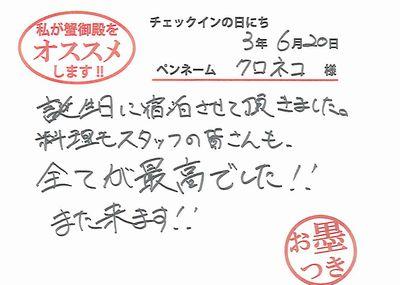 私が蟹御殿を
オススメ
します!!
チェックインの日にち
3年 6月20日
ペンネーム クロネコ 様
誕生日に宿泊させて頂きました。
料理もスタッフの皆さんも、
全てが最高でした!!
また来ます!!
お墨
つき